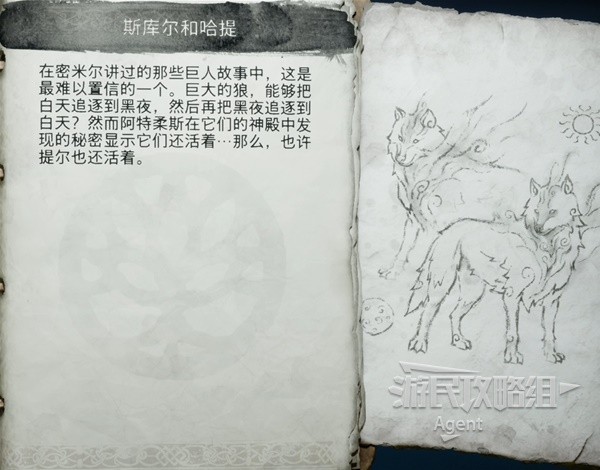 斯库尔和哈提
在密米尔讲过的那些巨人故事中，这是
最难以置信的一个。巨大的狼，能够把
白天追逐到黑夜，然后再把黑夜追逐到
白天？然而阿特柔斯在它们的神殿中发
现的秘密显示它们还活着…那么，也许
提尔也还活着。
游民攻略组
Agent